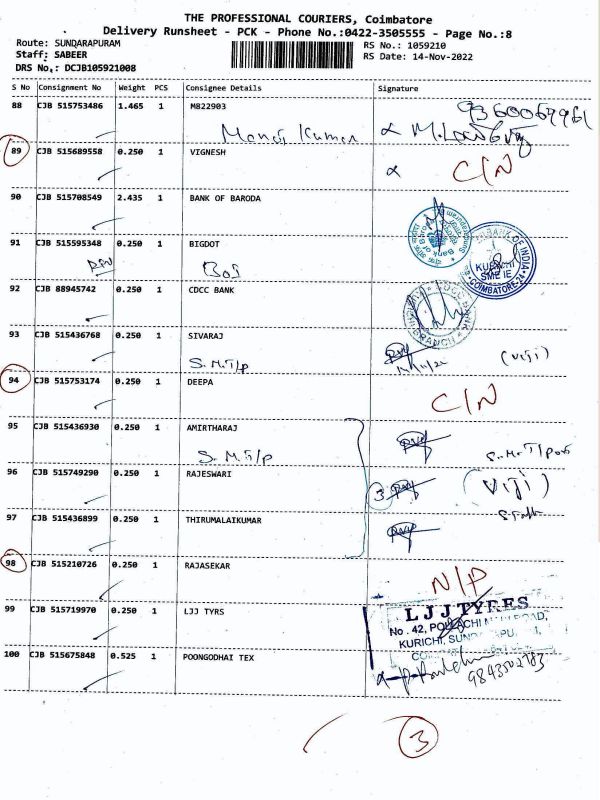 THE PROFESSIONAL COURIERS, Coimbatore
Delivery Runsheet - PCK - Phone No.:0422-3505555 - Page No.:8
Route: SUNDARAPURAM
RS No.: 1059210
Staff: SABEER
RS Date: 14-Nov-2022
DRS No.: DCJB105921008
S No Consignment No Weight PCS Consignee Details Signature
88 CJB 515753486 1.465 1 M822903
9360069961
Manoj Kumar
89 CJB 515689558 0.250 1 VIGNESH C/N
90 CJB 515708549 2.435 1 BANK OF BARODA
91 CJB 515595348 0.250 1 BIGDOT
BOI
BANK OF INDIA
KURICHI
SME IE
COIMBATORE-24
92 CJB 88945742 0.250 1 CDCC BANK
BRANCH
93 CJB 515436768 0.250 1 SIVARAJ
S.M.T/p (Viji)
94 CJB 515753174 0.250 1 DEEPA C/N
95 CJB 515436930 0.250 1 AMIRTHARAJ
S.M.T/p
96 CJB 515749290 0.250 1 RAJESWARI 3 (Viji)
97 CJB 515436899 0.250 1 THIRUMALAIKUMAR
98 CJB 515210726 0.250 1 RAJASEKAR N/P
99 CJB 515719970 0.250 1 LJJ TYRS
L J J TYRES
No. 42, POLLACHI MAIN ROAD,
KURICHI,
100 CJB 515675848 0.525 1 POONGODHAI TEX
9843502783
3